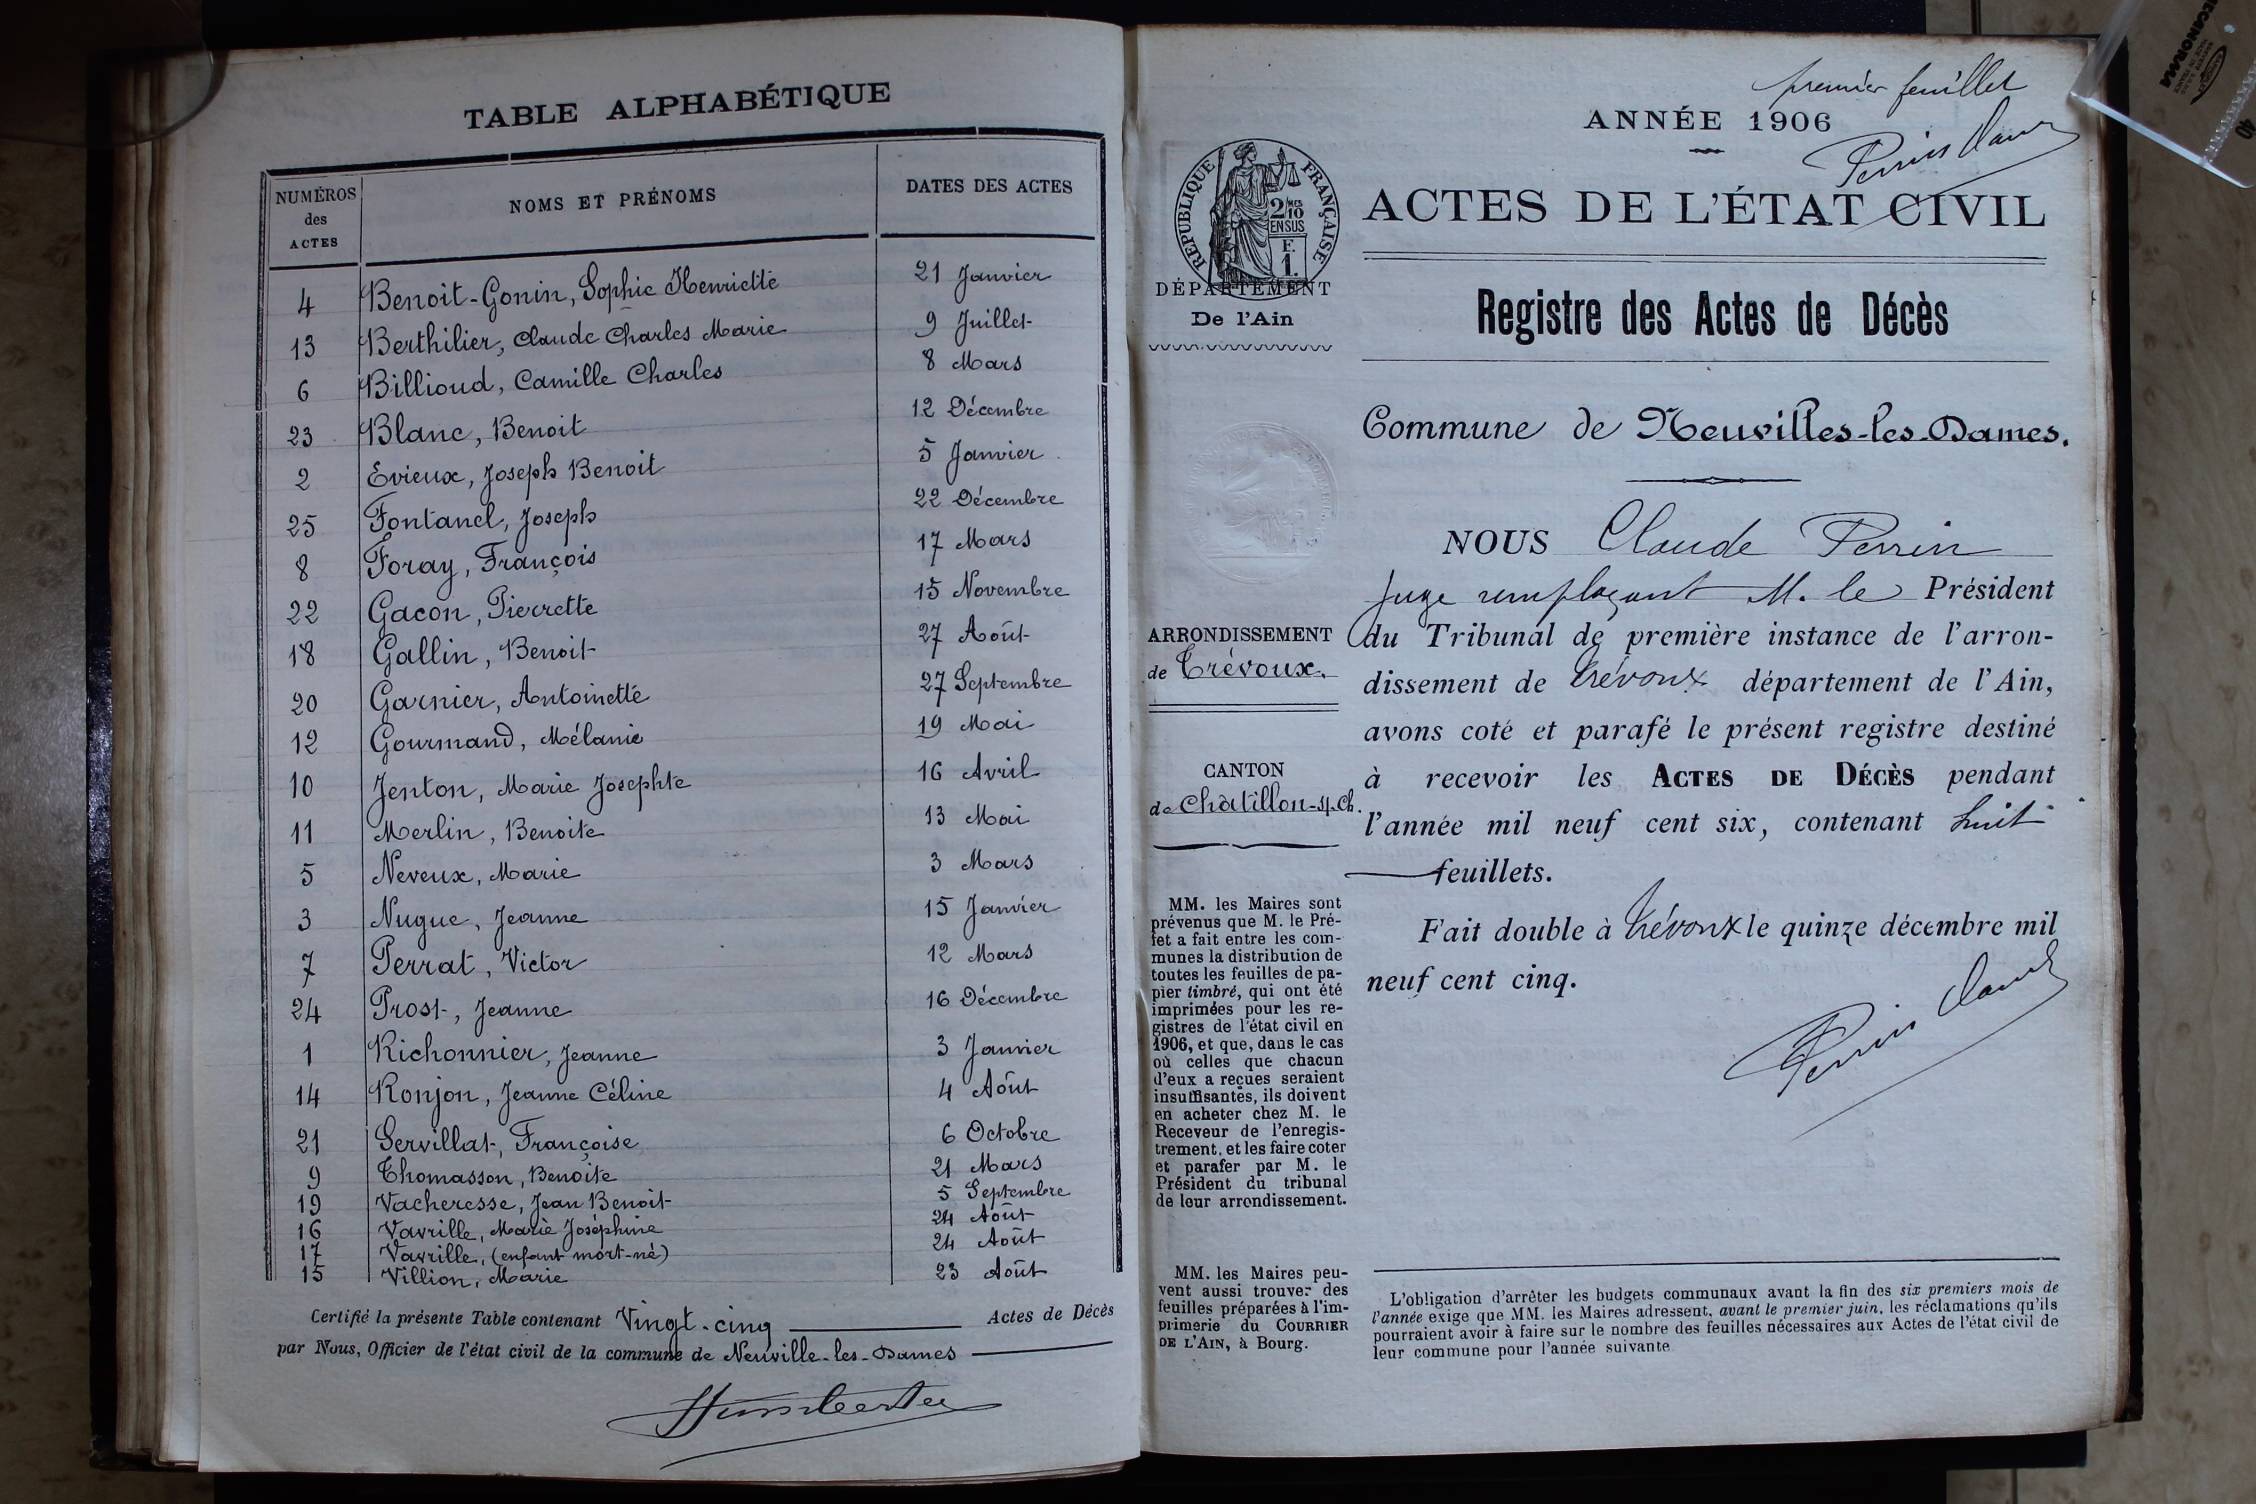 TABLE ALPHABÉTIQUE
NUMÉROS des ACTES NOMS ET PRÉNOMS DATES DES ACTES
4 Benoit-Gonin, Sophie Henriette 21 Janvier
13 Berthilier, Claude Charles Marie 9 Juillet
6 Billioud, Camille Charles 8 Mars
23 Blanc, Benoit 12 Décembre
2 Evieux, Joseph Benoit 5 Janvier
25 Fontanel, Joseph 22 Décembre
8 Foray, François 17 Mars
22 Gacon, Pierrette 15 Novembre
18 Gallin, Benoit 27 Août
20 Garnier, Antoinette 27 Septembre
12 Gourmand, Mélanie 19 Mai
10 Jenton, Marie Josephte 16 Avril
11 Merlin, Benoite 13 Mai
5 Neveux, Marie 3 Mars
3 Nugue, Jeanne 15 Janvier
7 Perrat, Victor 12 Mars
24 Prost, Jeanne 16 Décembre
1 Richonnier, Jeanne 3 Janvier
14 Ronjon, Jeanne Céline 4 Août
21 Servillat, Françoise 6 Octobre
9 Thomasson, Benoite 21 Mars
19 Vacheresse, Jean Benoit 5 Septembre
16 Vavrille, Marie Joséphine 24 Août
17 Vavrille, (enfant mort-né) 24 Août
15 Villion, Marie 23 Août
Certifié la présente Table contenant Vingt-cinq Actes de Décès
par Nous, Officier de l'état civil de la commune de Neuville-les-Dames
premier feuillet
ANNÉE 1906
Perrin Claude
RÉPUBLIQUE FRANÇAISE
2/10
EN SUS
F.
1.
DÉPARTEMENT
De l'Ain
ARRONDISSEMENT
de Trévoux.
CANTON
de Chatillon-s/-Ch.
MM. les Maires sont
prévenus que M. le Pré-
fet a fait entre les com-
munes la distribution de
toutes les feuilles de pa-
pier timbré, qui ont été
imprimées pour les re-
gistres de l'état civil en
1906, et que, dans le cas
où celles que chacun
d'eux a reçues seraient
insuffisantes, ils doivent
en acheter chez M. le
Receveur de l'enregis-
trement, et les faire coter
et parafer par M. le
Président du tribunal
de leur arrondissement.
MM. les Maires peu-
vent aussi trouver des
feuilles préparées à l'im-
primerie du COURRIER
DE L'AIN, à Bourg.
ACTES DE L'ÉTAT CIVIL
Registre des Actes de Décès
Commune de Neuvilles-les-Dames.
NOUS Claude Perrin
Juge remplaçant M. le Président
du Tribunal de première instance de l'arron-
dissement de Trévoux département de l'Ain,
avons coté et parafé le présent registre destiné
à recevoir les ACTES DE DÉCÈS pendant
l'année mil neuf cent six, contenant huit
feuillets.
Fait double à Trévoux le quinze décembre mil
neuf cent cinq.
Perrin Claude
L'obligation d'arrêter les budgets communaux avant la fin des six premiers mois de
l'année exige que MM. les Maires adressent, avant le premier juin, les réclamations qu'ils
pourraient avoir à faire sur le nombre des feuilles nécessaires aux Actes de l'état civil de
leur commune pour l'année suivante
MECANORMA
40